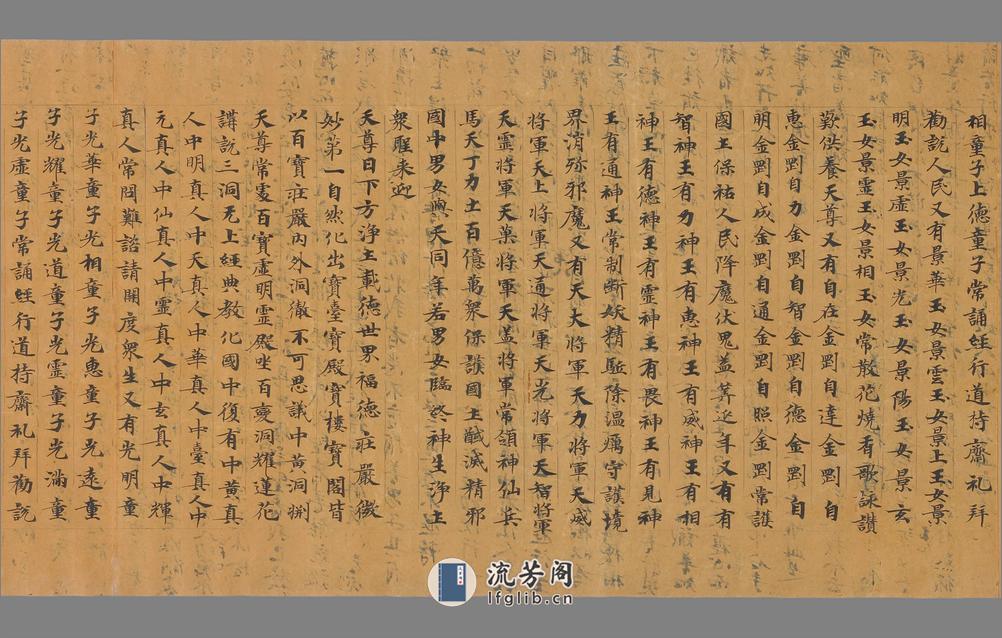 相童子上德童子常誦經行道持齋礼拜
勸說人民又有景華玉女景雲玉女景上玉女景
明玉女景虛玉女景光玉女景陽玉女景玄
玉女景靈玉女景相玉女常散花燒香歌詠讃
歎供養天尊又有自在金剛自達金剛自
惠金剛自力金剛自智金剛自德金剛自
明金剛自成金剛自通金剛自照金剛常護
國土保祐人民降魔伏鬼益筭延年又有有
智神王有力神王有惠神王有威神王有相
神王有德神王有靈神王有畏神王有見神
王有通神王常制断妖精駈除温癘守護境
界消殄邪魔又有天大將軍天力將軍天威
將軍天上將軍天通將軍天光將軍天智將軍
天靈將軍天菓將軍天盖將軍常領神仙兵
馬天丁力士百億萬衆保護國土馘滅精邪
國中男女與天同年若男女臨終神生淨土
衆聖来迎
天尊曰下方淨土載德世界福德莊嚴微
妙第一自然化出寶臺寶殿寶樓寶閣皆
以百寶莊嚴内外洞徹不可思議中黄洞淵
天尊常處百寶虛明靈殿坐百變洞耀蓮花
講說三洞无上經典教化國中復有中黄真
人中明真人中天真人中華真人中臺真人中
元真人中仙真人中靈真人中玄真人中輝
真人常問難諮請開度衆生又有光明童
子光華童子光相童子光惠童子光遠童
子光耀童子光道童子光靈童子光滿童
子光虛童子常誦經行道持齋礼拜勸說
流芳阁
lfglib.cn